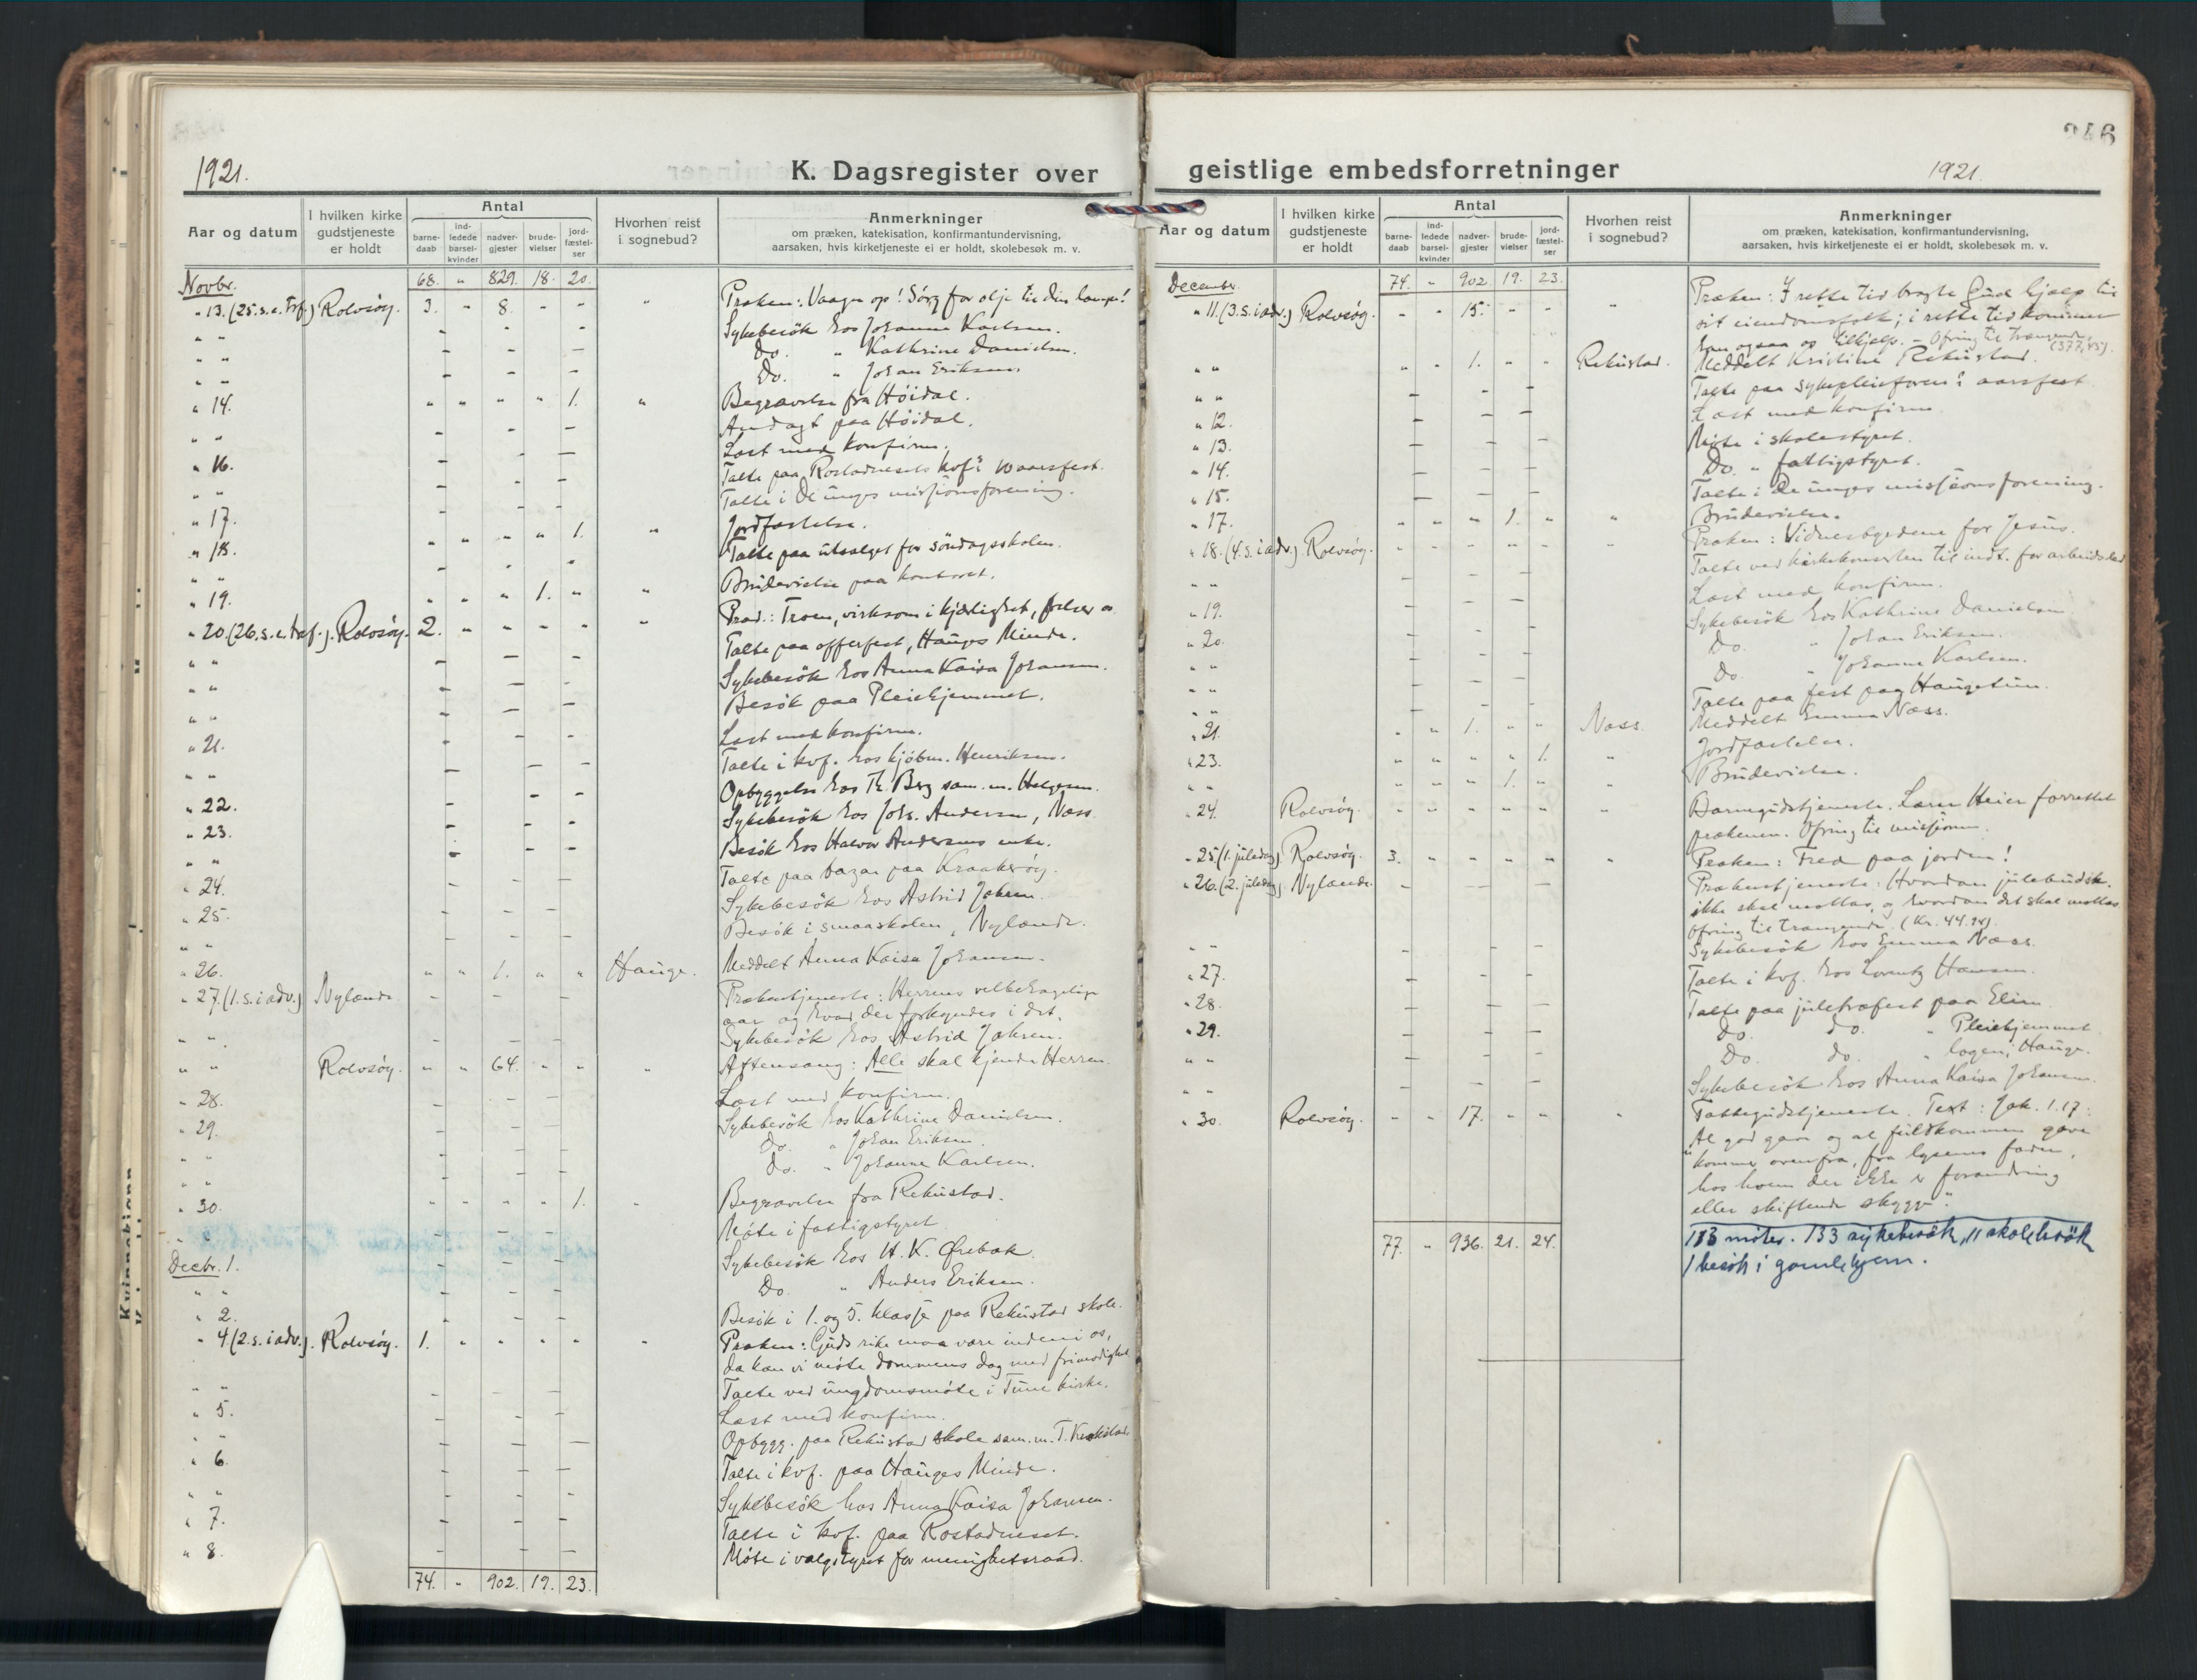 1921.
K. Dagsregister over
Aar og datum
I hvilken kirke gudstjeneste er holdt
Antal
barne-daab
ind-ledede barsel-kvinder
nadver-gjester
brude-vielser
jord-fæstel-ser
Hvorhen reist i sognebud?
Anmerkninger
om præken, katekisation, konfirmantundervisning,
aarsaken, hvis kirketjeneste ei er holdt, skolebesøk m. v.
Novbr. 68. " 829. 18. 20.
" 13. (25. s. e. tref.) Rolvsøy. 3. " 8. " " " Præken: Vaagn op! Sørg for olje til din lampe!
" " Sykebesök hos Johanne Karlsen.
" " Do. " Kathrine Danielsen.
" " Do. " Johan Eriksen.
" 14. " " " " 1. " Begravelse fra Höidal.
" " Andagt paa Höidal.
" 16. Læst med konfirm.
" " Talte paa Rostadnesets kvf's 10 aarsfest.
" 17. Talte i De unges missionsforening.
" 18. " " " " 1. " Jordfæstelse.
" " Talte paa utsalget for söndagsskolen.
" 19. " " " 1. " " Brudevielse paa kontoret.
" 20. (26. s. e. tref.). Rolvsøy. 2. " " " " " Præd.: Troen, virksom i kjærlighet, frelser os.
" " Talte paa offerfest, Hauges Minde.
" " Sykebesök hos Anna Kaisa Johansen.
" " Besök paa Pleiehjemmet.
" 21. Læst med konfirm.
" " Talte i kvf. hos kjöbm. Henriksen.
" 22. Opbyggelse hos Th. Berg sam. m. Helgesen.
" 23. Sykebesök hos Johs. Andersen, Næss.
" " Besök hos Halvor Andersens enke.
" 24. Talte paa bazar paa Kraakerøy.
" 25. Sykebesök hos Astrid Jahren.
" " Besök i smaaskolen, Nylænde.
" 26. " " 1. " " Hauge. Meddelt Anna Kaisa Johansen.
" 27. (1. s. i adv.) Nylænde Prækentjeneste: Herrens velbehagelige
aar og hvad der forkyndes i det.
" " Sykebesök hos Astrid Jahren.
" " Rolvsøy. " " 64. " " " Aftensang: Alle skal kjende Herren.
" 28. Læst med konfirm.
" 29. Sykebesök hos Kathrine Danielsen.
" " Do. " Johan Eriksen.
" " Do. " Johanne Karlsen.
" 30. " " " " 1. " Begravelse fra Rekustad.
" " Möte i fattigstyret
Decbr. 1. Sykebesök hos H. K. Ørebæk.
" " Do. " Anders Eriksen.
" 2. Besök i 1. og 5. klasse paa Rekustad skole.
" 4 (2. s. i adv.). Rolvsøy. 1. " " " " " Præken: Guds rike maa være inden i os,
da kan vi möte dommens dag med frimodighet
" " Talte ved ungdomsmöte i Tune kirke.
" 5. Læst med konfirm.
" " Opbygg. paa Rekustad skole sam. m. T.
" 6. Talte i kvf. paa Hauges Minde.
" " Sykebesök hos Anna Kaisa Johansen.
" 7. Talte i kvf. paa Rostadneset.
" 8. Möte i valgstyret for menighetsraad.
74. " 902. 19. 23.
246
geistlige embedsforretninger
1921.
Aar og datum
I hvilken kirke gudstjeneste er holdt
Antal
barne-daab
ind-ledede barsel-kvinder
nadver-gjester
brude-vielser
jord-fæstel-ser
Hvorhen reist i sognebud?
Anmerkninger
om præken, katekisation, konfirmantundervisning,
aarsaken, hvis kirketjeneste ei er holdt, skolebesøk m. v.
December. 74. " 902. 19. 23.
" 11. (3. s. i adv.) Rolvsøy. " " 15. " " " Præken: I rette tid bragte Gud hjælp til
sit eiendomsfolk; i rette tid kommer
han ogsaa os til hjelp. – Ofring til trængende (377,45).
" " " " 1. " " Rekustad. Meddelt Kristine Rekustad.
" " Talte paa sykepleieforen's aarsfest
" 12. Læst med konfirm.
" 13. Möte i skolestyret.
" 14. Do. " fattigstyret.
" 15. Talte i De unges missionsforening.
" 17. " " " 1. " " Brudevielse.
" 18. (4. s. i adv.). Rolvsøy. " " " " " " Præken: Vidnesbyrdene for Jesus.
" " Talte ved kirkekonserten til indt. for arbeidsled
" 19. Læst med konfirm.
" 20. Sykebesök hos Kathrine Danielsen
" " Do. " Johan Eriksen.
" " Do. " Johanne Karlsen.
" " Talte paa fest paa Haugetun.
" 21. " " 1. " " Næss. Meddelt Emma Næss.
" 23. " " " " 1. " Jordfæstelse.
" " " " " 1. " " Brudevielse.
" 24. Rolvsøy. " " " " " " Barnegudstjeneste. Lærer Heier forrettet
prækenen. Ofring til missionen.
" 25. (1. juledag). Rolvsøy. 3. " " " " " Præken: Fred paa jorden!
" 26. (2. juledag) Nylænde. Prækentjeneste: Hvordan julebudsk.
ikke skal mottas, og hvordan det skal mottas
Ofring til trængende. (Kr. 44.94).
" " Sykebesök hos Emma Næss.
" 27. Talte i kvf. hos Lorentz Hansen.
" 28. Talte paa juletræfest paa Elim.
" 29. Do. do. " Pleiehjemmet
" " Do. do. " logen, Hauge.
" " Sykebesök hos Anna Kaisa Johansen.
" 30. Rolvsøy. " " 17. " " " Takkegudstjeneste. Text: Jak. 1.17:
"Al god gave og al fuldkommen gave
kommer ovenfra, fra lysenes fader,
hos hvem der ikke er forandring
eller skiftende skygge".
77. " 936. 21. 24. 133 möter. 133 sykebesök, 11 skolebesök
1 besök i gamlehjem.